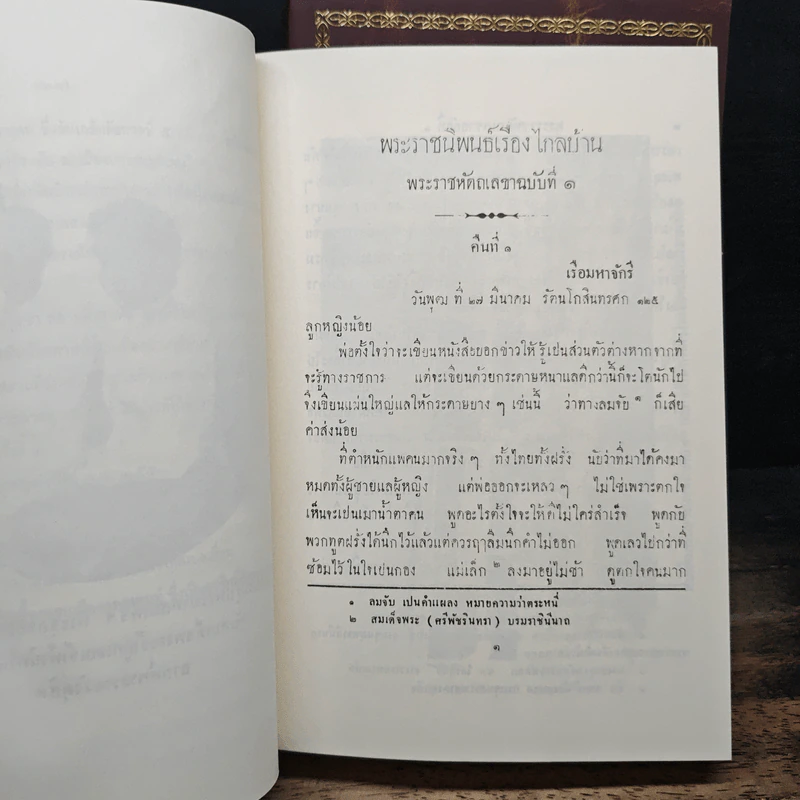 พระราชนิพนธ์เรื่องไกลบ้าน
พระราชหัตถเลขาฉบับที่ ๑
คืนที่ ๑
เรือมหาจักรี
วันพุฒ ที่ ๒๗ มีนาคม รัตนโกสินทรศก ๑๒๕
ลูกหญิงน้อย
พ่อตั้งใจว่าจะเขียนหนังสือบอกข่าวให้รู้เป็นส่วนตัวต่างหากจากที่
จะรู้ทางราชการ แต่จะเขียนด้วยกระดาษหนาแลดีกว่านี้ก็จะโตนักไป
จึงเขียนแผ่นใหญ่แลให้กระดาษบาง ๆ เช่นนี้ ว่าทางลมจับ ๑ ก็เสีย
ค่าส่งน้อย
ที่ตำหนักแพคนมากจริง ๆ ทั้งไทยทั้งฝรั่ง นับว่าที่มาได้คงมา
หมดทั้งผู้ชายแลผู้หญิง แต่พ่อออกจะเหลว ๆ ไม่ใช่เพราะตกใจ
เห็นจะเป็นเมาน้ำตาคน พูดอะไรตั้งใจจะให้ดีไม่ใคร่สำเร็จ พูดกับ
พวกทูตฝรั่งได้นึกไว้แล้วแต่ควรฤๅลืมนึกคำไม่ออก พูดเลวไปกว่าที่
ซ้อมไว้ในใจเป็นกอง แม่เล็ก ๒ ลงมาอยู่ไม่ช้า ดูตกใจคนมาก
๑ ลมจับ เป็นคำแผลง หมายความว่าตระหนี่
๒ สมเด็จพระ (ศรีพัชรินทรา) บรมราชินีนาถ
๑